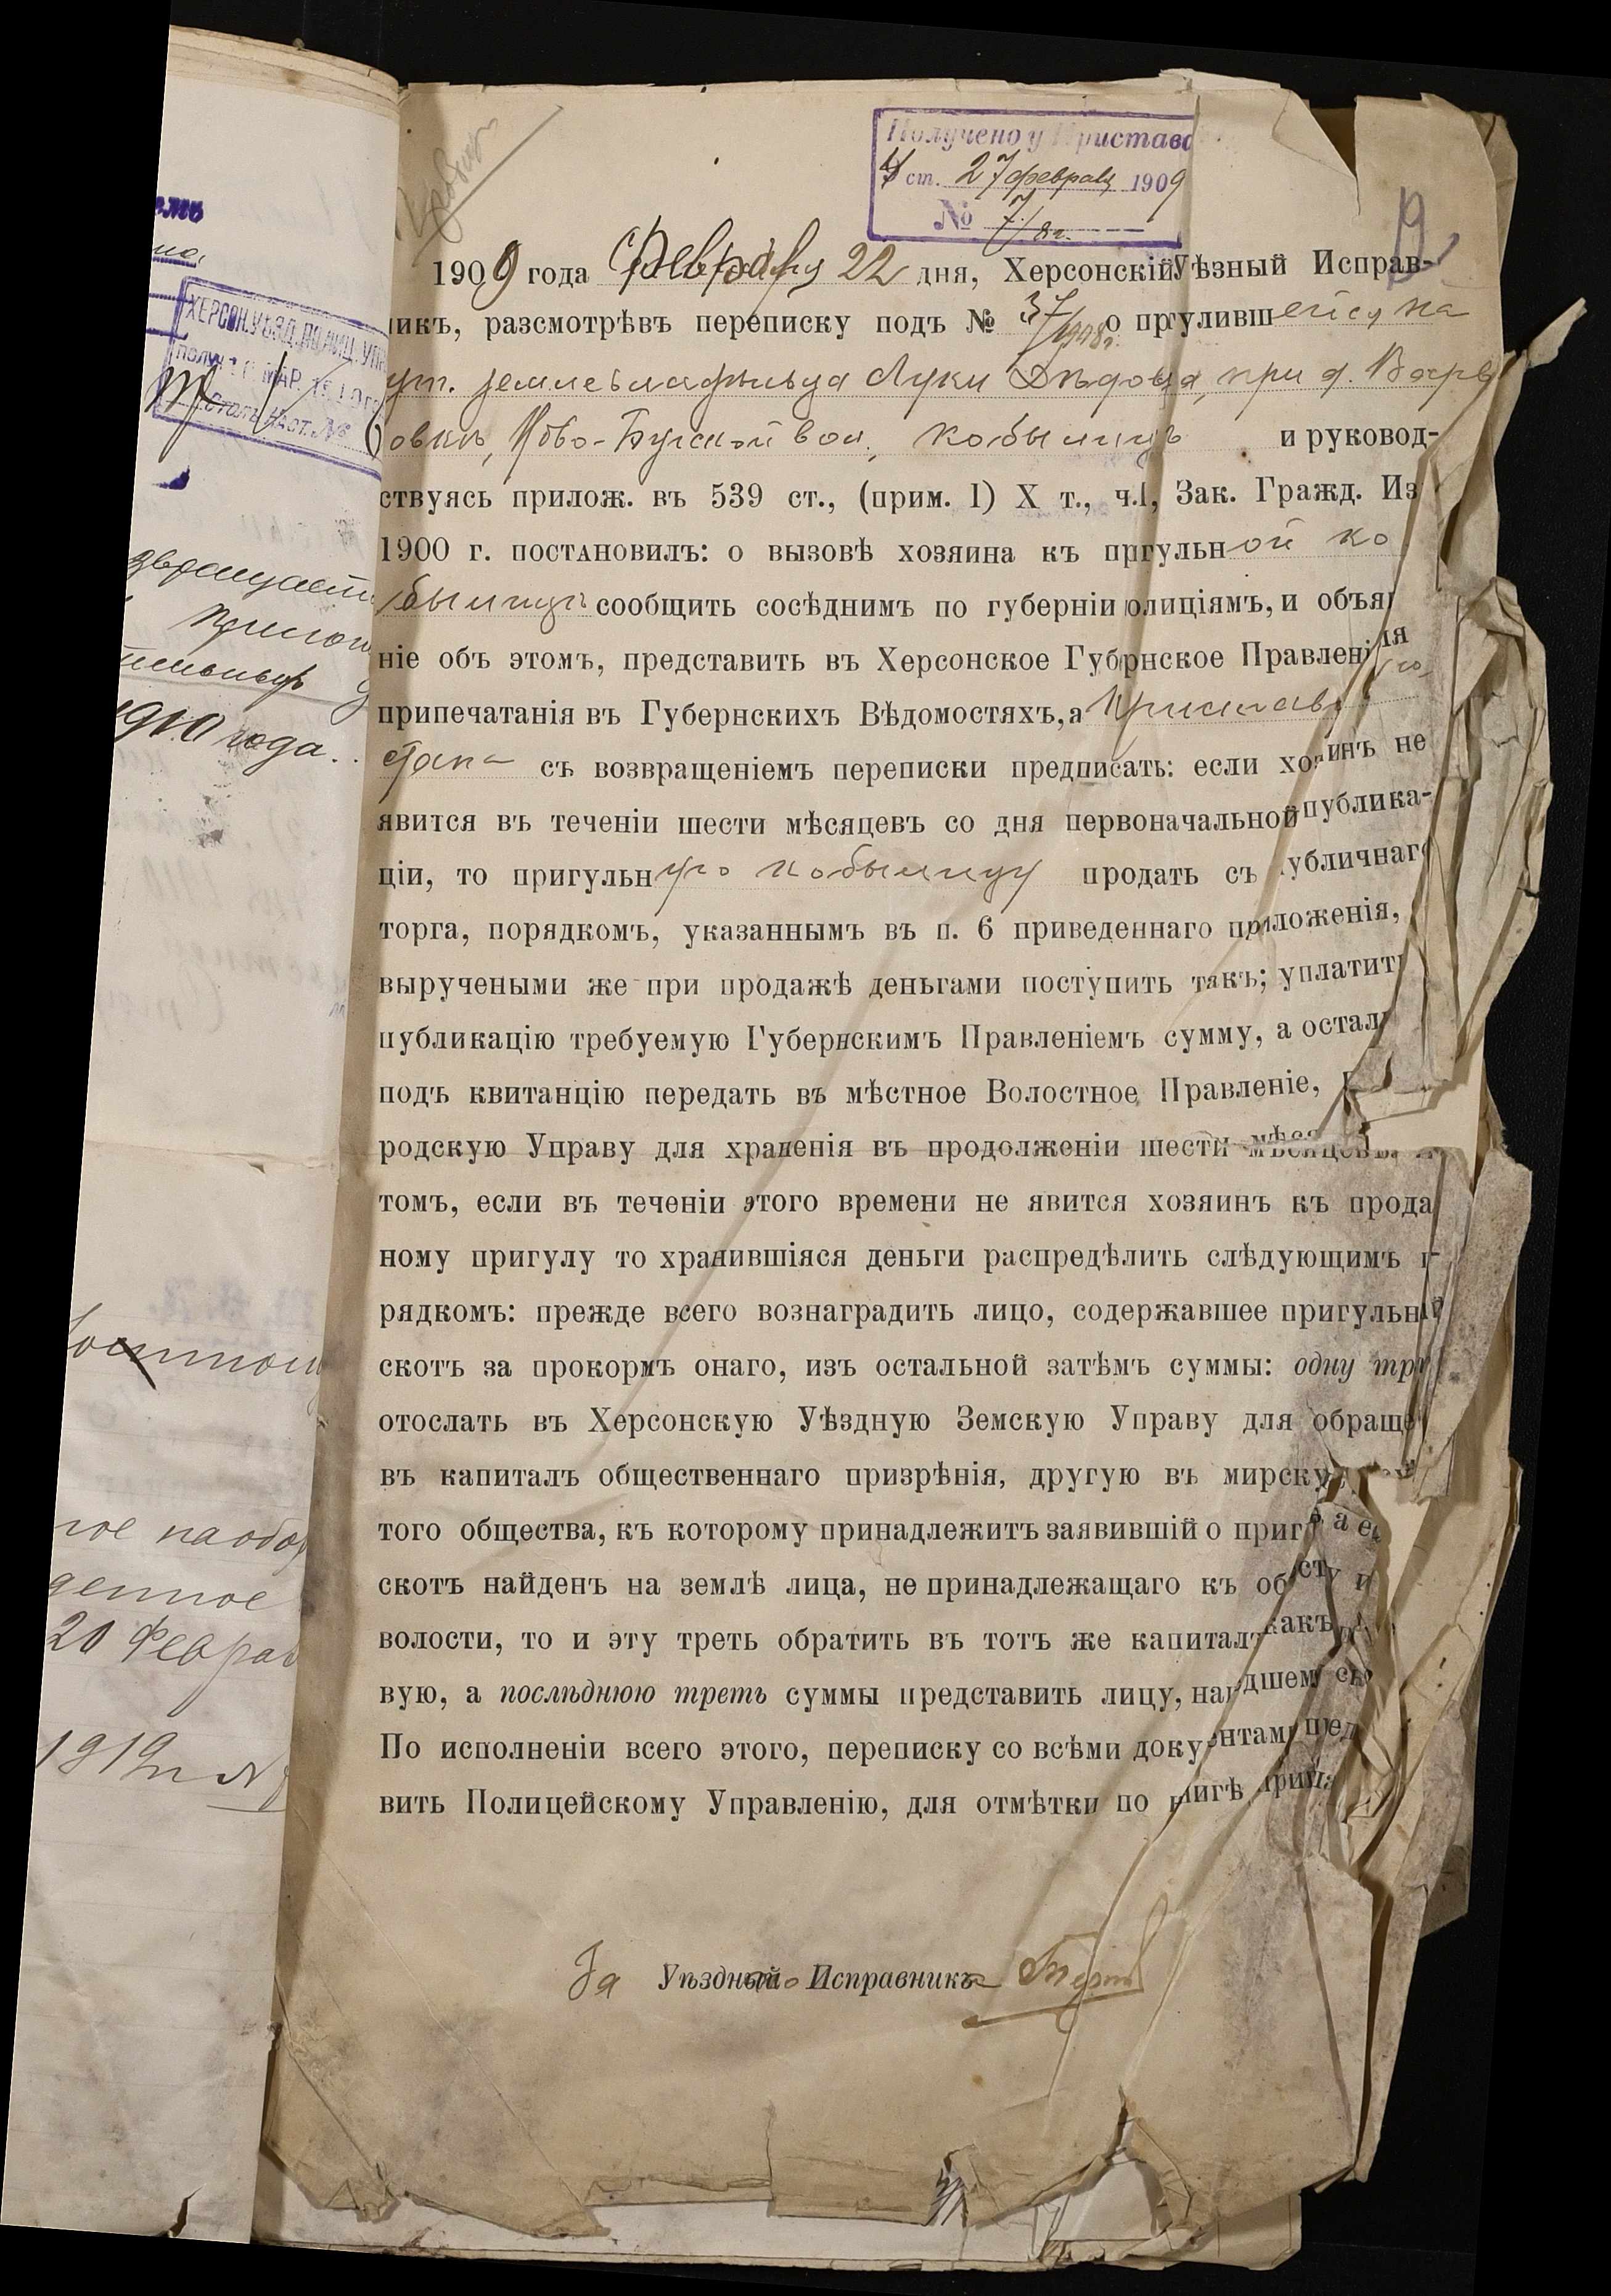 Получено у Пристава
ст. 27 февраля 1909
№ 7/
19
1909 года Февраля 22 дня, Херсонскій Уѣзный Исправ-
никъ, разсмотрѣвъ переписку подъ № 37/1908 г. о пргулившейся на
землевладѣльца Луки Дѣдова, при д.
Ново-Бугской вол., кобылицѣ и руковод-
ствуясь прилож. въ 539 ст., (прим. 1) X т., ч.1, Зак. Гражд. Из
1900 г. постановилъ: о вызовѣ хозяина къ пргульной ко
былицѣ сообщить сосѣднимъ по губерніи олиціямъ, и объя
ніе объ этомъ, представить въ Херсонское Губрнское Правлені
припечатанія въ Губернскихъ Вѣдомостяхъ, а Приставу
стана съ возвращеніемъ переписки предписать: если хозяинъ не
явится въ теченіи шести мѣсяцевъ со дня первоначальной публика-
ціи, то пригульную кобылицу продать съ убличнаго
торга, порядкомъ, указаннымъ въ п. 6 приведеннаго приложенія,
выручеными же при продажѣ деньгами поступить такъ; уплатить
публикацію требуемую Губернскимъ Правленіемъ сумму, а осталь
подъ квитанцію передать въ мѣстное Волостное Правленіе,
родскую Управу для храненія въ продолженіи шести мѣсяцевъ.
томъ, если въ теченіи этого времени не явится хозяинъ къ прода
ному пригулу то хранившіяся деньги распредѣлить слѣдующимъ п
рядкомъ: прежде всего вознаградить лицо, содержавшее пригульный
скотъ за прокормъ онаго, изъ остальной затѣмъ суммы: одну тре
отослать въ Херсонскую Уѣздную Земскую Управу для обраще
въ капиталъ общественнаго призрѣнія, другую въ мирску
того общества, къ которому принадлежитъ заявившій о приг а ес
скотъ найденъ на землѣ лица, не принадлежащаго къ об ству и
волости, то и эту треть обратить въ тотъ же капиталъ какъ
вую, а послѣднюю треть суммы представить лицу, нашедшему ско
По исполненіи всего этого, переписку со всѣми документами пред
вить Полицейскому Управленію, для отмѣтки по книгѣ
За Уѣзднаго Исправника
ХЕРСОН. УѢЗД. ПОЛИЦ. УПР
МАР. 1910
звращаетс
1910 года.
денное
20 Феврал